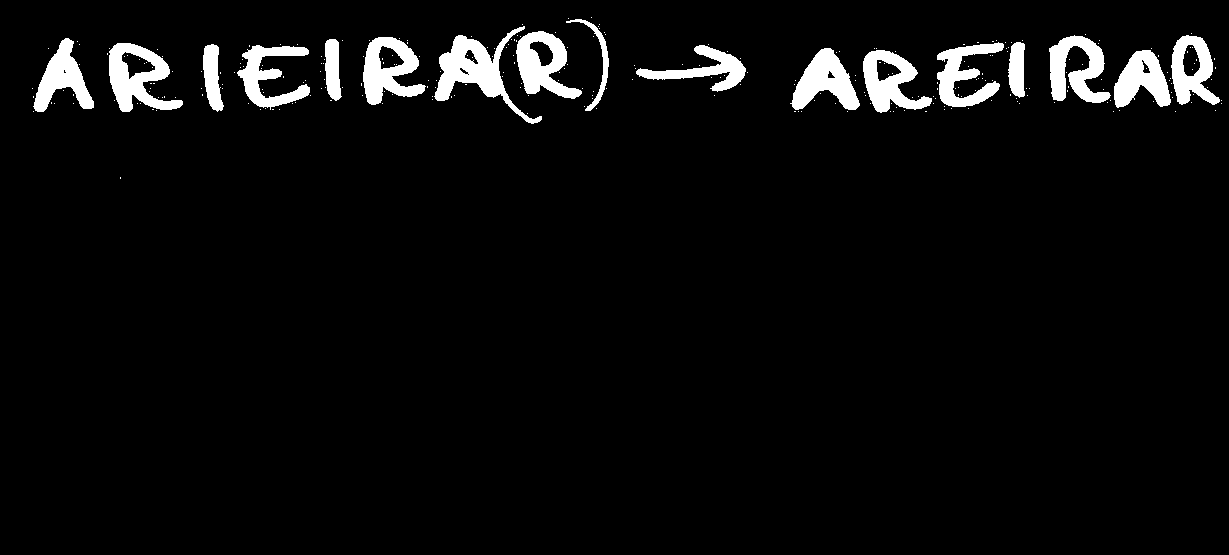 ARIEIRA(R) → AREIRAR